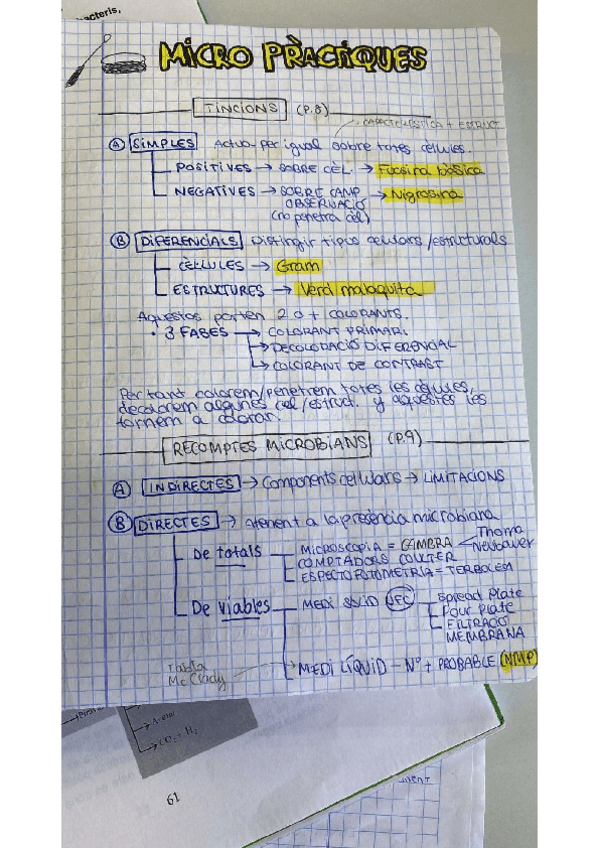 acteris,
MICRO PRÀCTIQUES
TINCIONS (P.8)
CARACTERÍSTICA + ESTRUCT
A SIMPLES Actua per igual sobre totes cèlules.
POSITIVES → SOBRE CÈL. → Fucsina bàsica
NEGATIVES → SOBRE CAMP OBSERVACIÓ → Nigrosina
(no penetra cèl)
B DIFERENCIALS Distingir tipus celulars/estructurals
CÈLLULES → Gram
ESTRUCTURES → Verd malaquita
Aquestos porten 2 o + COLORANTS.
• 3 FASES → COLORANT PRIMARI
→ DECOLORACIÓ DIFERENCIAL
→ COLORANT DE CONTRAST
Per tant colorem/penetrem totes les cèlules,
decolorem algunes cel/estruct. y aquestes les
tornem a colorar.
RECOMPTES MICROBIANS (P.9)
A INDIRECTES → Components cellulars → LIMITACIONS
B DIRECTES → atenent a la presència microbiana
De totals MICROSCOPIA = CAMBRA Thoma
Neubauer
COMPTADORS COULTER
ESPECTOFOTOMETRIA = TERBOLESA
De viables MEDI SÒLID UFC Spread Plate
Pour plate
FILTRACIÓ
MEMBRANA
Tabla
McCrady
MEDI LÍQUID - Nº + PROBABLE (NMP)
CO₂ + H₂
61